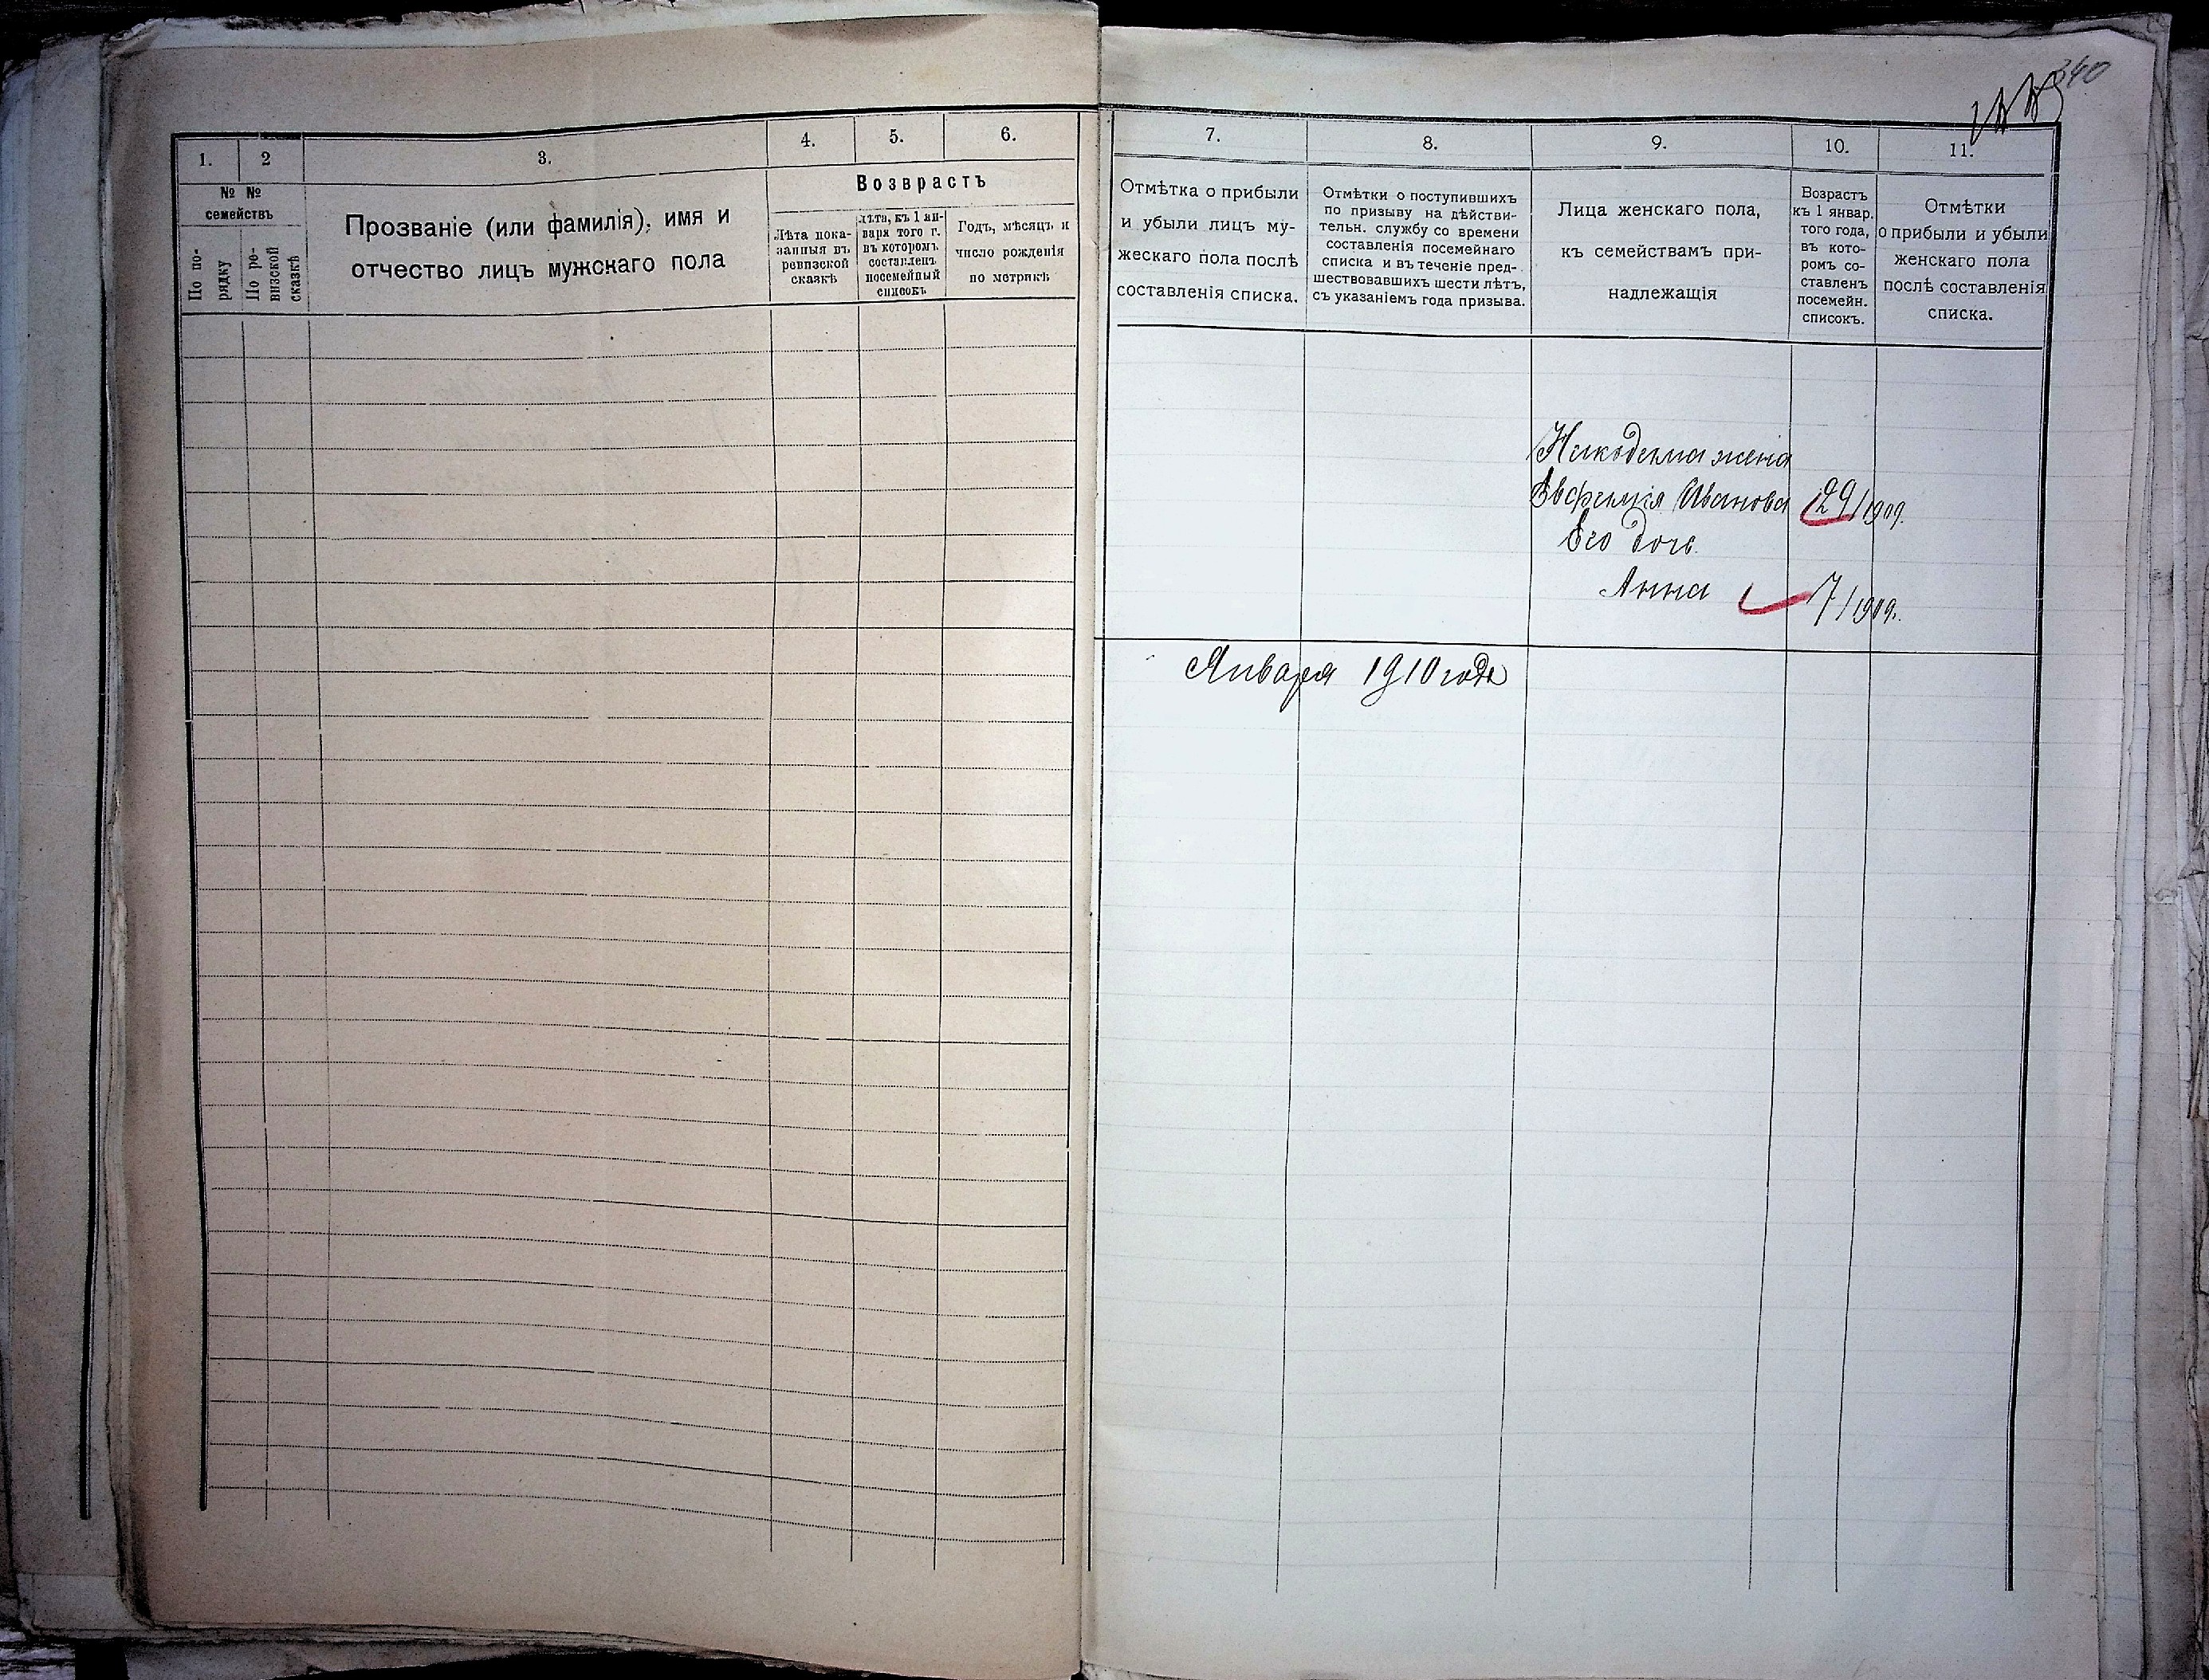 1.
2
3.
4.
5.
6.
№ №
семействъ
По по-
рядку
По ре-
визской
сказкѣ
Прозваніе (или фамилія), имя и
отчество лицъ мужскаго пола
Возврастъ
Лѣта пока-
занныя въ
ревизской
сказкѣ
Лѣта, къ 1 ян-
варя того г.
въ которомъ
составленъ
посемейный
списокъ
Годъ, мѣсяцъ и
число рожденія
по метрикѣ
340
7.
8.
9.
10.
11.
Отмѣтка о прибыли
и убыли лицъ му-
жескаго пола послѣ
составленія списка.
Отмѣтки о поступившихъ
по призыву на дѣйстви-
тельн. службу со времени
составленія посемейнаго
списка и въ теченіе пред-
шествовавшихъ шести лѣтъ,
съ указаніемъ года призыва.
Лица женскаго пола,
къ семействамъ при-
надлежащія
Возрастъ
къ 1 январ.
того года,
въ кото-
ромъ со-
ставленъ
посемейн.
списокъ.
Отмѣтки
о прибыли и убыли
женскаго пола
послѣ составленія
списка.
Никодима жена
Евфимія Иванова 29/1909.
Его дочь
Анна 7/1909.
Января 1910 года